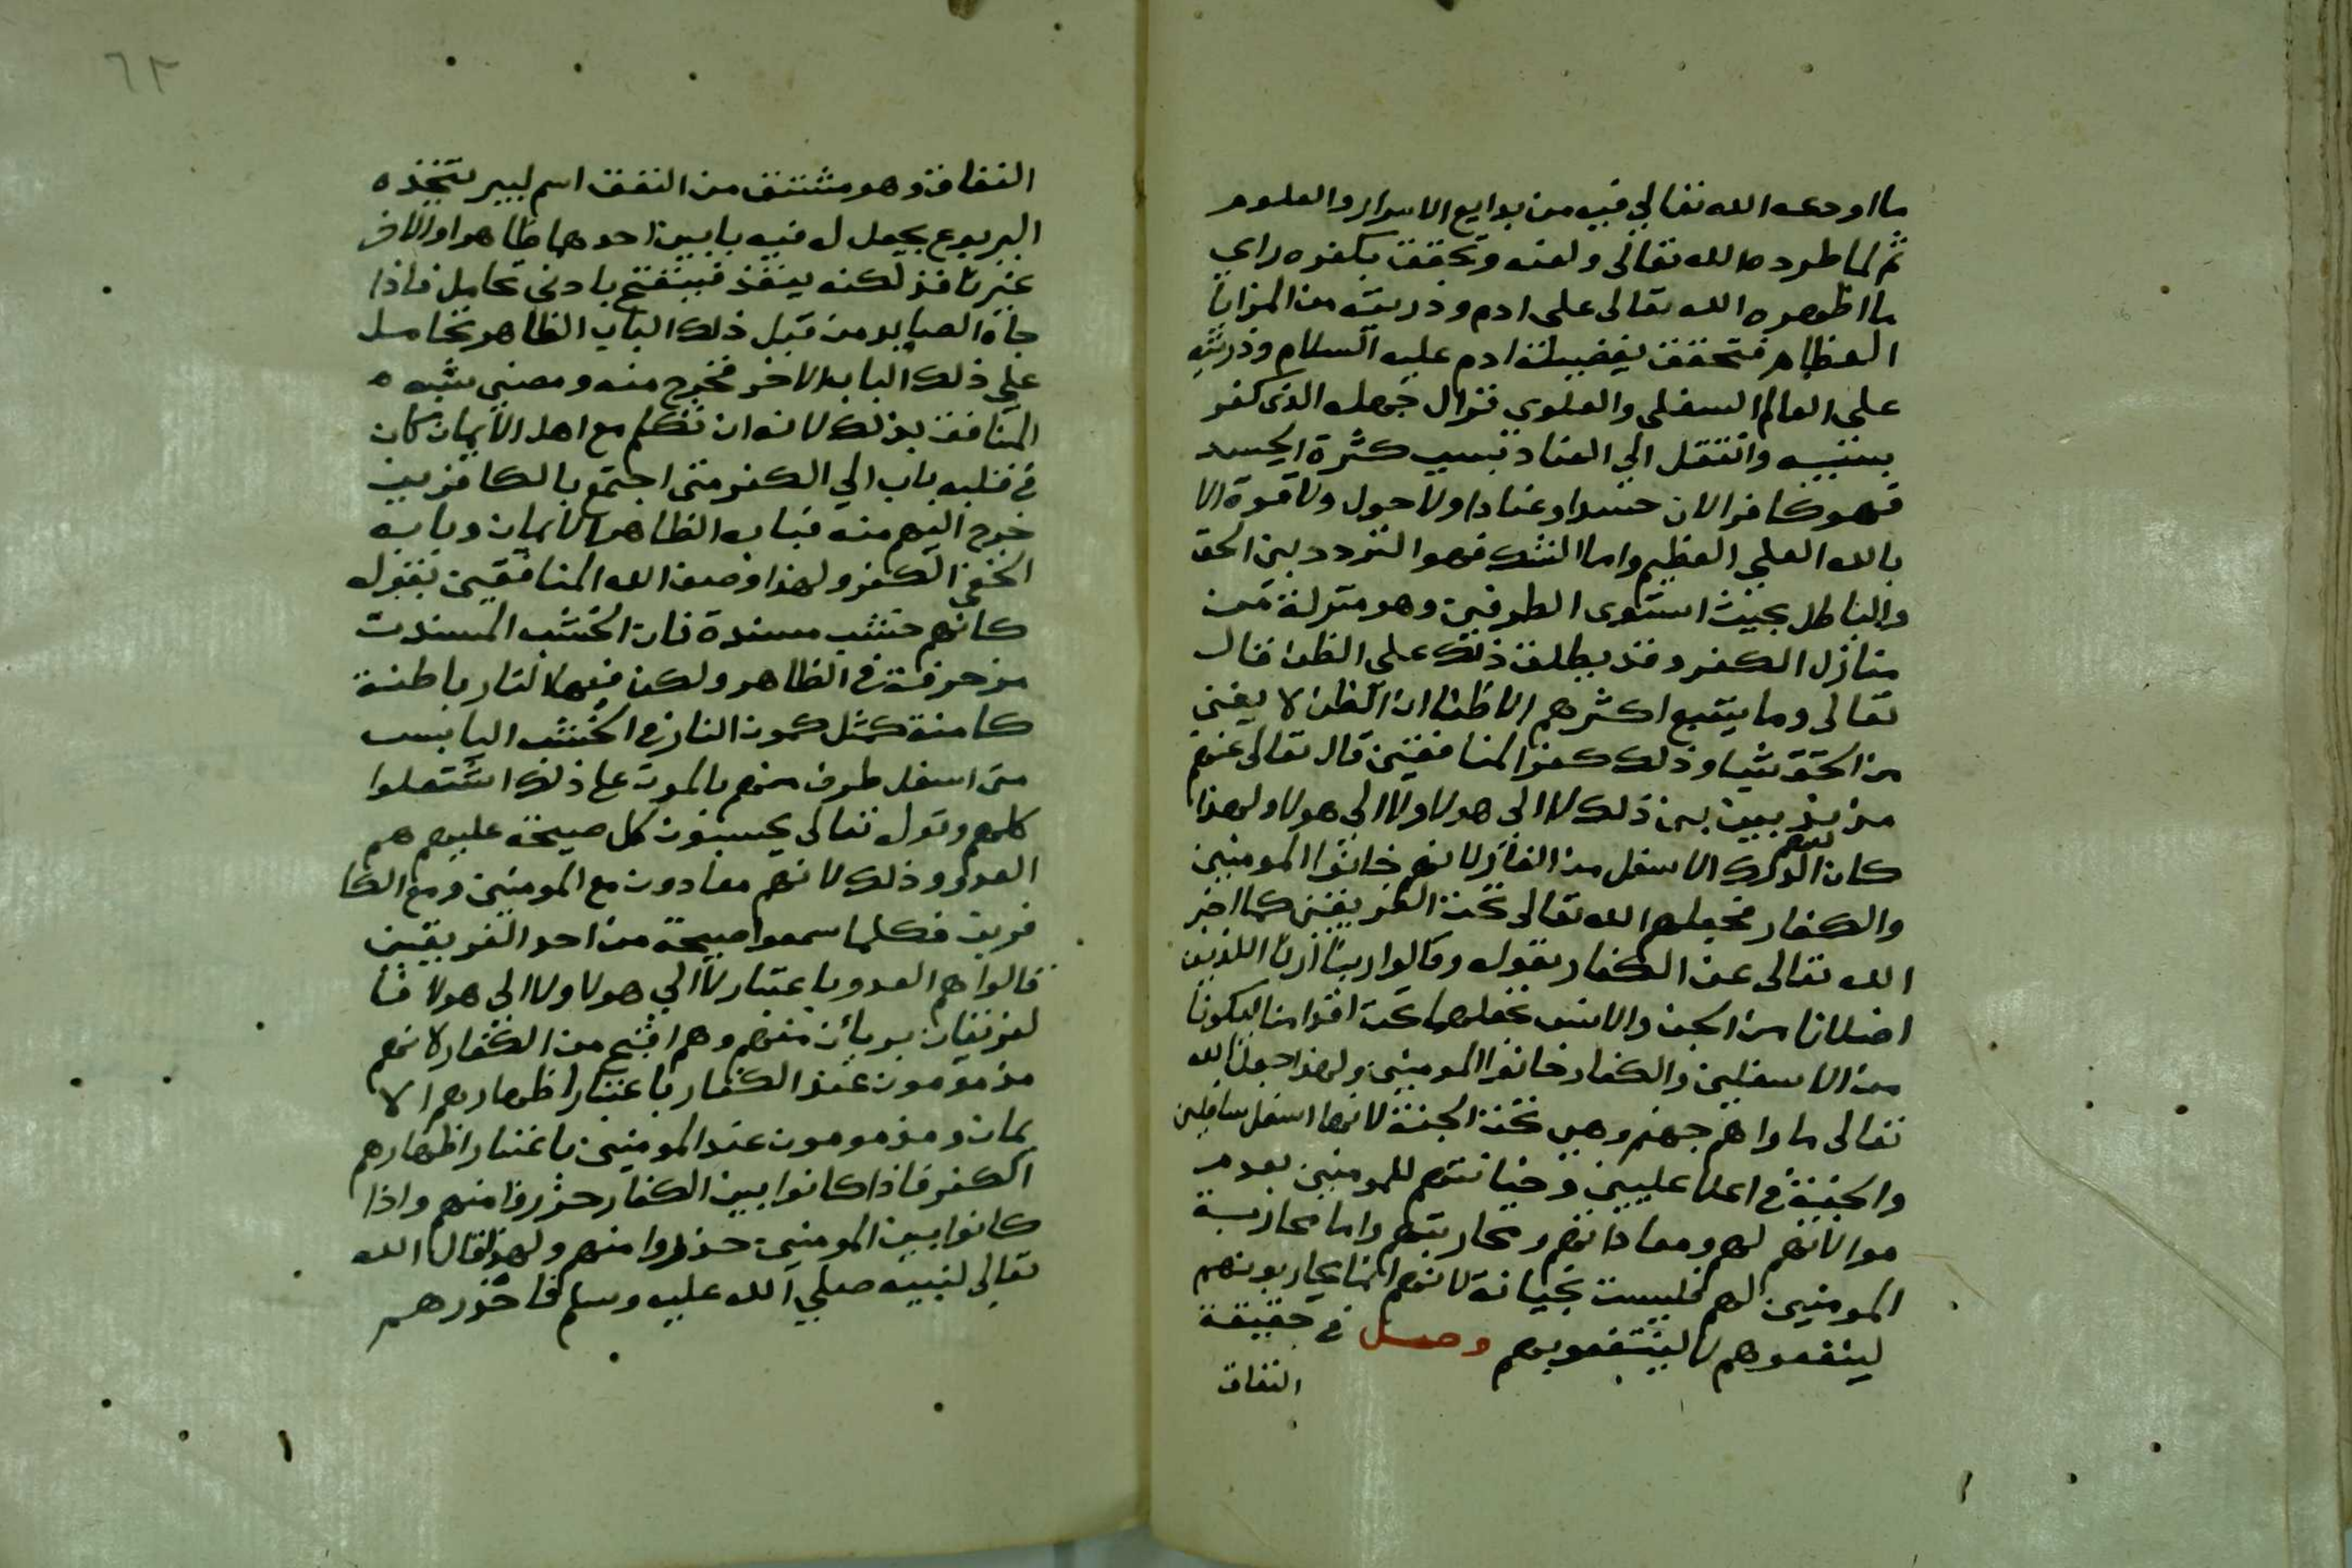 ما اودعه الله تعالى فيه من بدايع الاسرار والعلوم
ثم لما طرده الله تعالى ولعنه وتحقق بكفره راي
ما اظهره الله تعالى على ادم وذريته من المزايا
العظام فتحقق بفضيلة ادم عليه السلام وذريته
على العالم السفلي والعلوي فزال جهله الذي كفر
بسببه وانتقل الي العناد بسبب كثرة الحسد
فهو كافر الان حسدا وعنادا ولا حول ولا قوة الا
بالله العلي العظيم واما الشك فهو التردد بين الحق
والباطل بحيث استوى الطرفين وهو منزلة من
منازل الكفر وقد يطلق ذلك على الظن قال
تعالى وما يتبع اكثرهم الا ظنا ان الظن لا يغني
من الحق شيا وذلك كفر المنافقين قال تعالى عنهم
مذبذبين بين ذلك لا الى هولا ولا الى هولا ولهذا
كان لهم الدرك الاسفل من النار لانهم خانوا المومنين
والكفار فجعلهم الله تعالى تحت الفريقين كما اخبر
الله تعالى عن الكفار بقوله وقالوا ربنا ارنا اللذين
اضلانا من الجن والانس نجعلهما تحت اقدامنا ليكونا
من الاسفلين والكفار خانوا المومنين ولهذا جعل الله
تعالى ماواهم جهنم وهي تحت الجنة لانها اسفل سافلين
والجنة في اعلا عليين وخيانتهم للمومنين بعدم
موالاتهم لهم ومعاداتهم ومحاربتهم واما محاربة
المومنين لهم فليست بخيانة لانهم انما يحاربونهم
لينفعوهم لا لينتفعوا بهم وصل في حقيقة
النفاق
٦٢
النفاق وهو مشتق من النفق اسم لبير يتخذه
اليربوع يجعل له فيه بابين احدهما ظاهرا والاخر
غير نافذ لكنه ينفذ فينفتح بادنى تحامل فاذا
جاه الصايد من قبل ذلك الباب الظاهر تحامل
علي ذلك الباب الاخر فخرج منه ومضى شبه
المنافق بذلك لانه ان تكلم مع اهل الايمان كان
في قلبه باب الي الكفر متى اجتمع بالكافرين
خرج اليهم منه فبابه الظاهر الايمان وبابه
الخفي الكفر ولهذا وصف الله المنافقين بقوله
كانهم خشب مسندة فان الخشب المسندت
مزخرفة في الظاهر ولكن فيها النار باطنة
كامنة كمثل كمون النار في الخشب اليابس
متى اسفل طرف منهم بالموت على ذلك اشتعلوا
كلهم وقوله تعالى يحسبون كل صيحة عليهم هم
العدو وذلك لانهم معادون مع المومنين ومع الكا
فرين فكلما سمعوا صيحة من احد الفريقين
قالوا هم العدو باعتبار لا الي هولا ولا الى هولا فا
لفريقان بريان منهم وهم اقبح من الكفار لانهم
مذمومون عند الكفار باعتبار اظهارهم الا
يمان ومذمومون عند المومنين باعتبار اظهارهم
الكفر فاذا كانوا بين الكفار حذروا منهم واذا
كانوا بين المومنين حذروا منهم ولهذا قال الله
تعالى لنبيه صلي الله عليه وسلم فاحذرهم